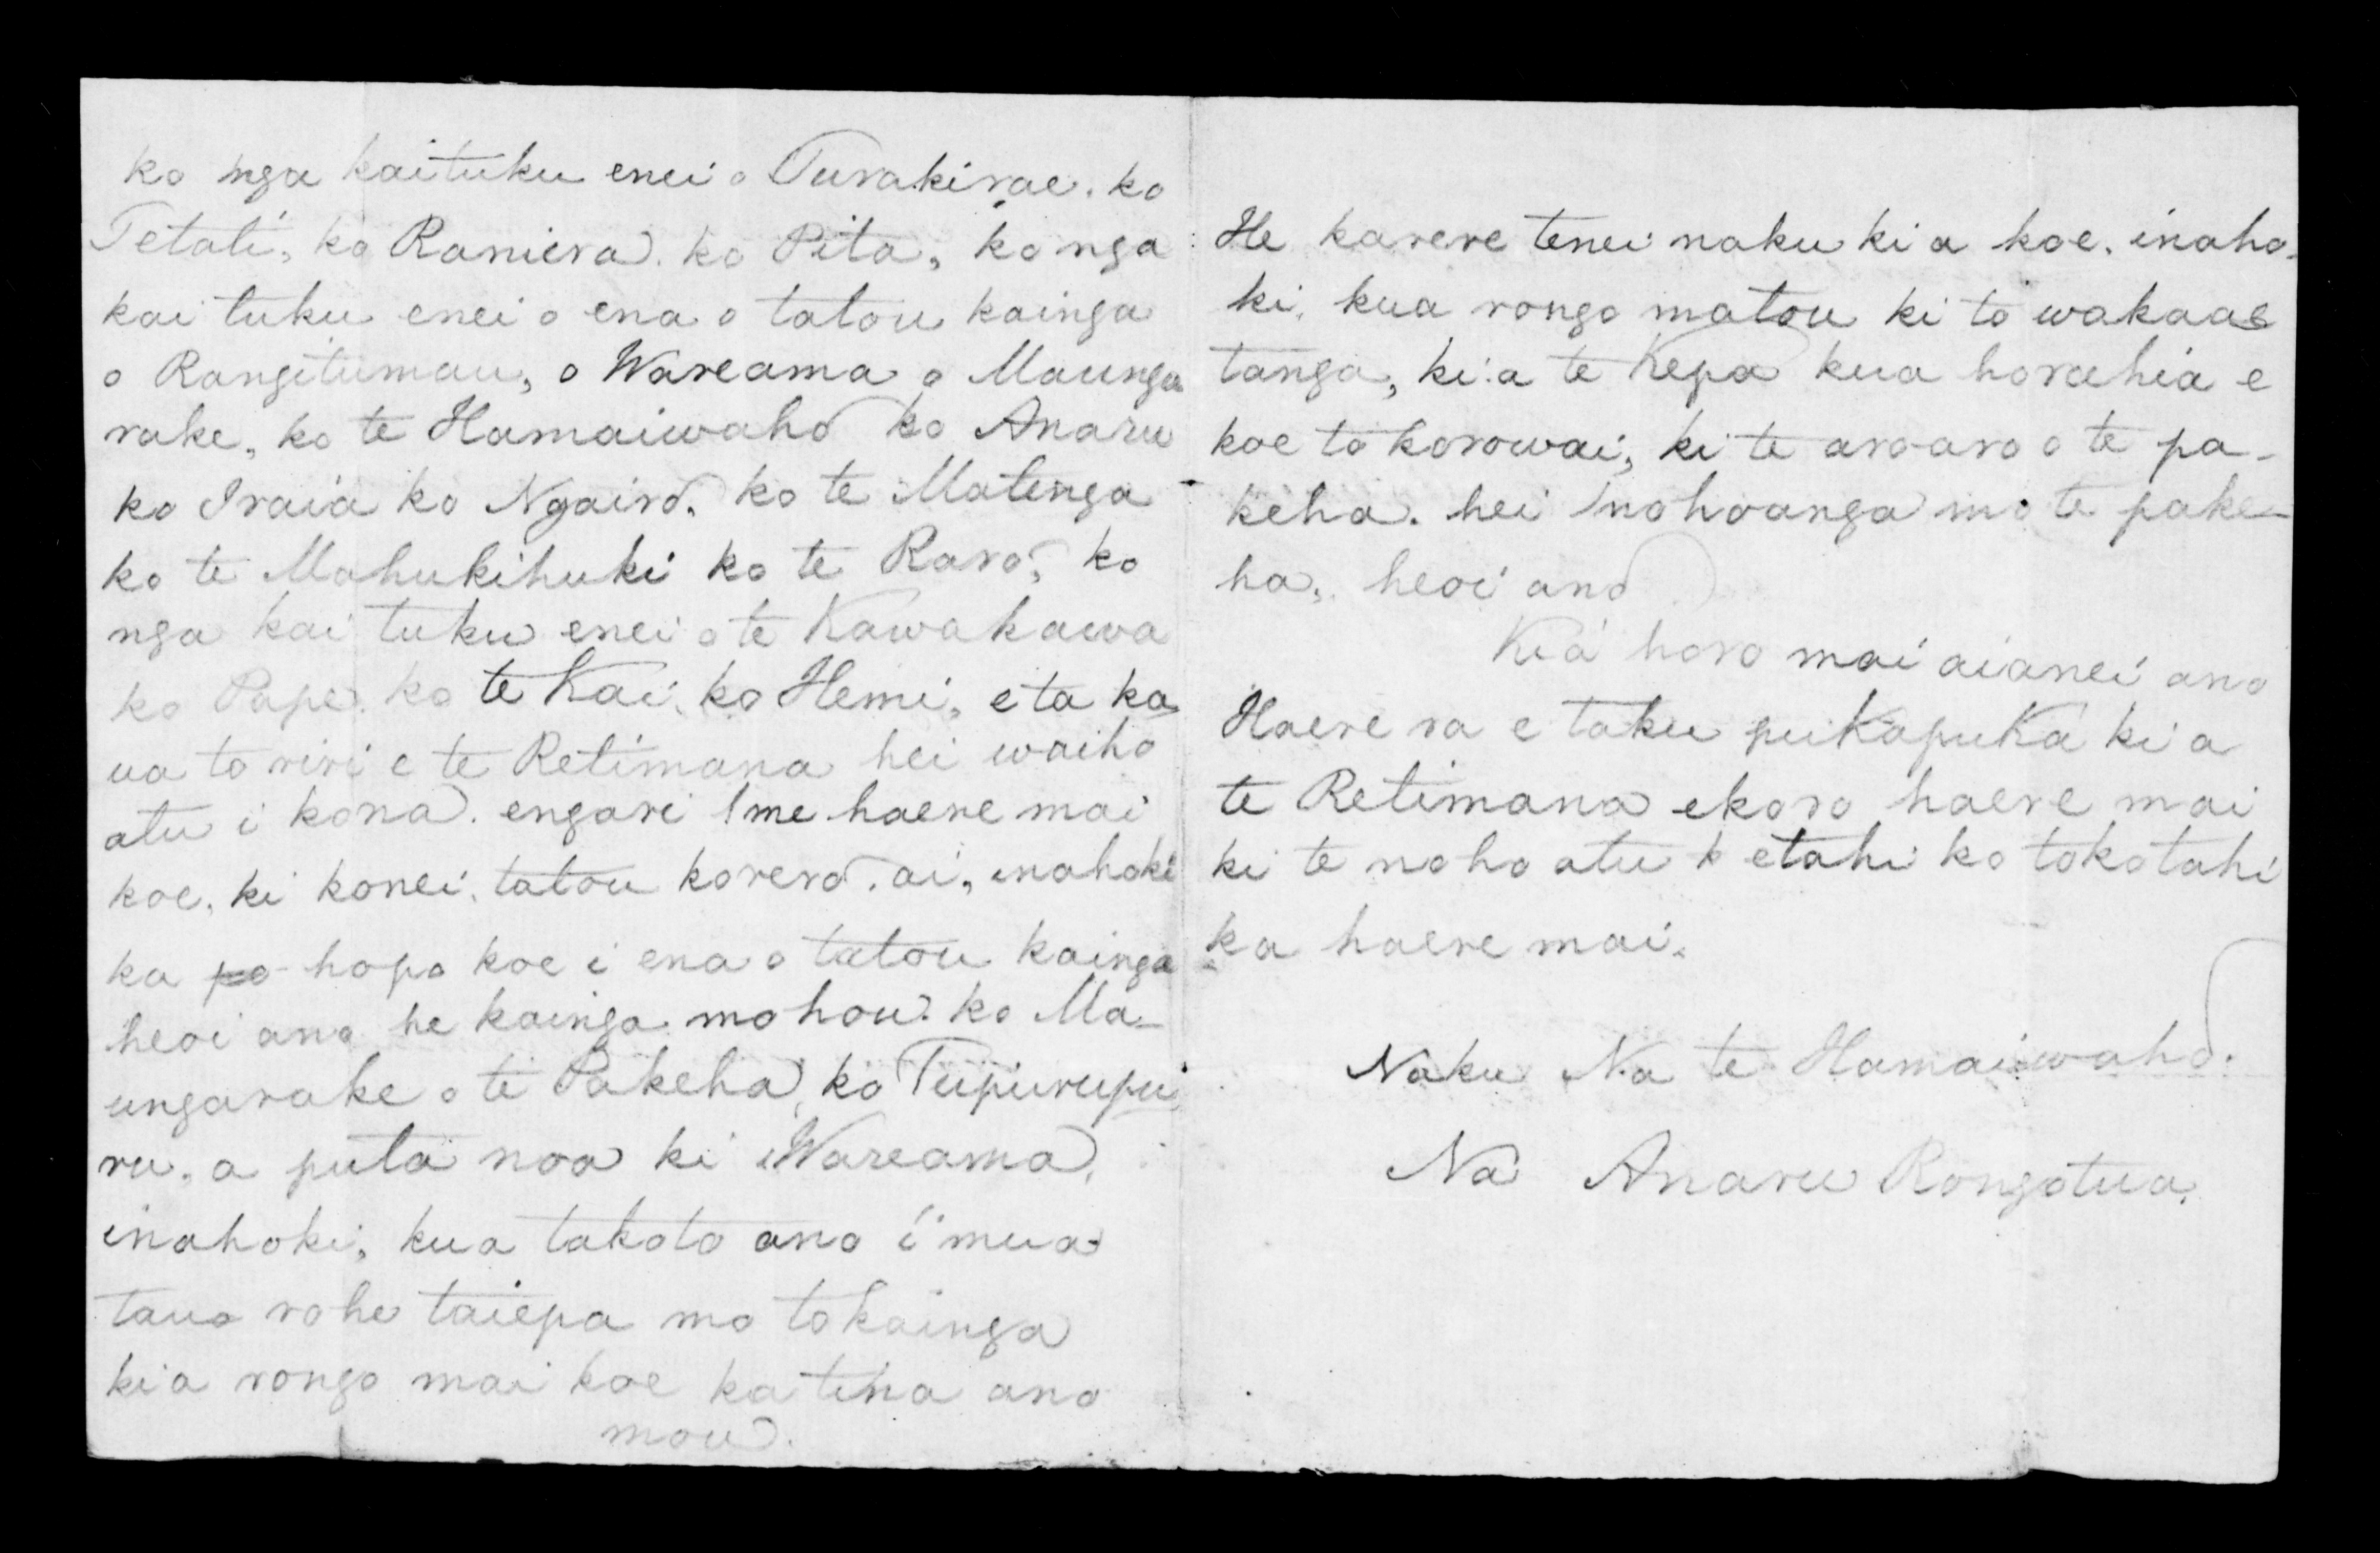 ko nga kaituku enei o Turakirae. ko
Tetati, ko Raniera. ko Pita, ko nga
kai tuku enei o ena o tatou kainga
o Rangitumau, o Wareama o Maunga
rake, ko te Hamaiwaho ko Anaru
ko Iraia ko Ngairo. ko te Matenga
ko te Mahukihuki ko te Raro, ko
nga kai tuku enei o te Kawakawa
ko Pape. ko te Kai, ko Hemi, eta ka
ua to riri e te Retimana hei waiho
atu i kona. engari me haere mai
koe, ki konei, tatou korero. ai, inahoki
ka po hopo koe i ena o tatou kainga
heoi ano he kainga mohou. ko Ma-
ungarake o te Pakeha, ko Tupurupu
ru, a puta noa ki Wareama,
inahoki, kua takoto ano i mua
taua rohe taiepa mo tokainga
kia rongo mai koe ka tina ano
mou.
He karere tenei naku ki a koe. inaho-
ki, kua rongo matou ki to wakaae
tanga, ki a te Kepa kua horahia e
koe to korowai, ki te aroaro o te pa-
keha. hei nohoanga mo te pake-
ha, heoi ano
Kia horo mai aianei ano
Haere ra e taku pukapuka ki a
te Retimana ekoro haere mai
ki te noho atu k etahi ko tokotahi
ka haere mai.
Naku Na te Hamaiwaho.
Na Anaru Rongotua.